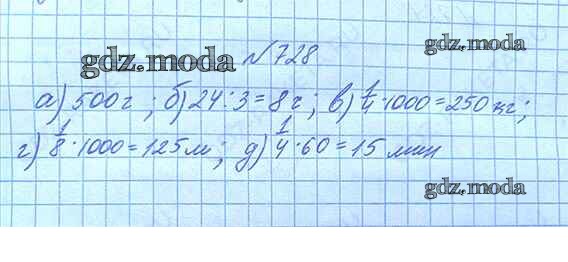 gdz.moda № 728 gdz.moda
а) 500 г ; б) 24 : 3 = 8 ч ; в) 1/4 · 1000 = 250 кг ;
г) 1/8 · 1000 = 125 м ; д) 1/4 · 60 = 15 мин
gdz.moda gdz.moda
gdz.moda